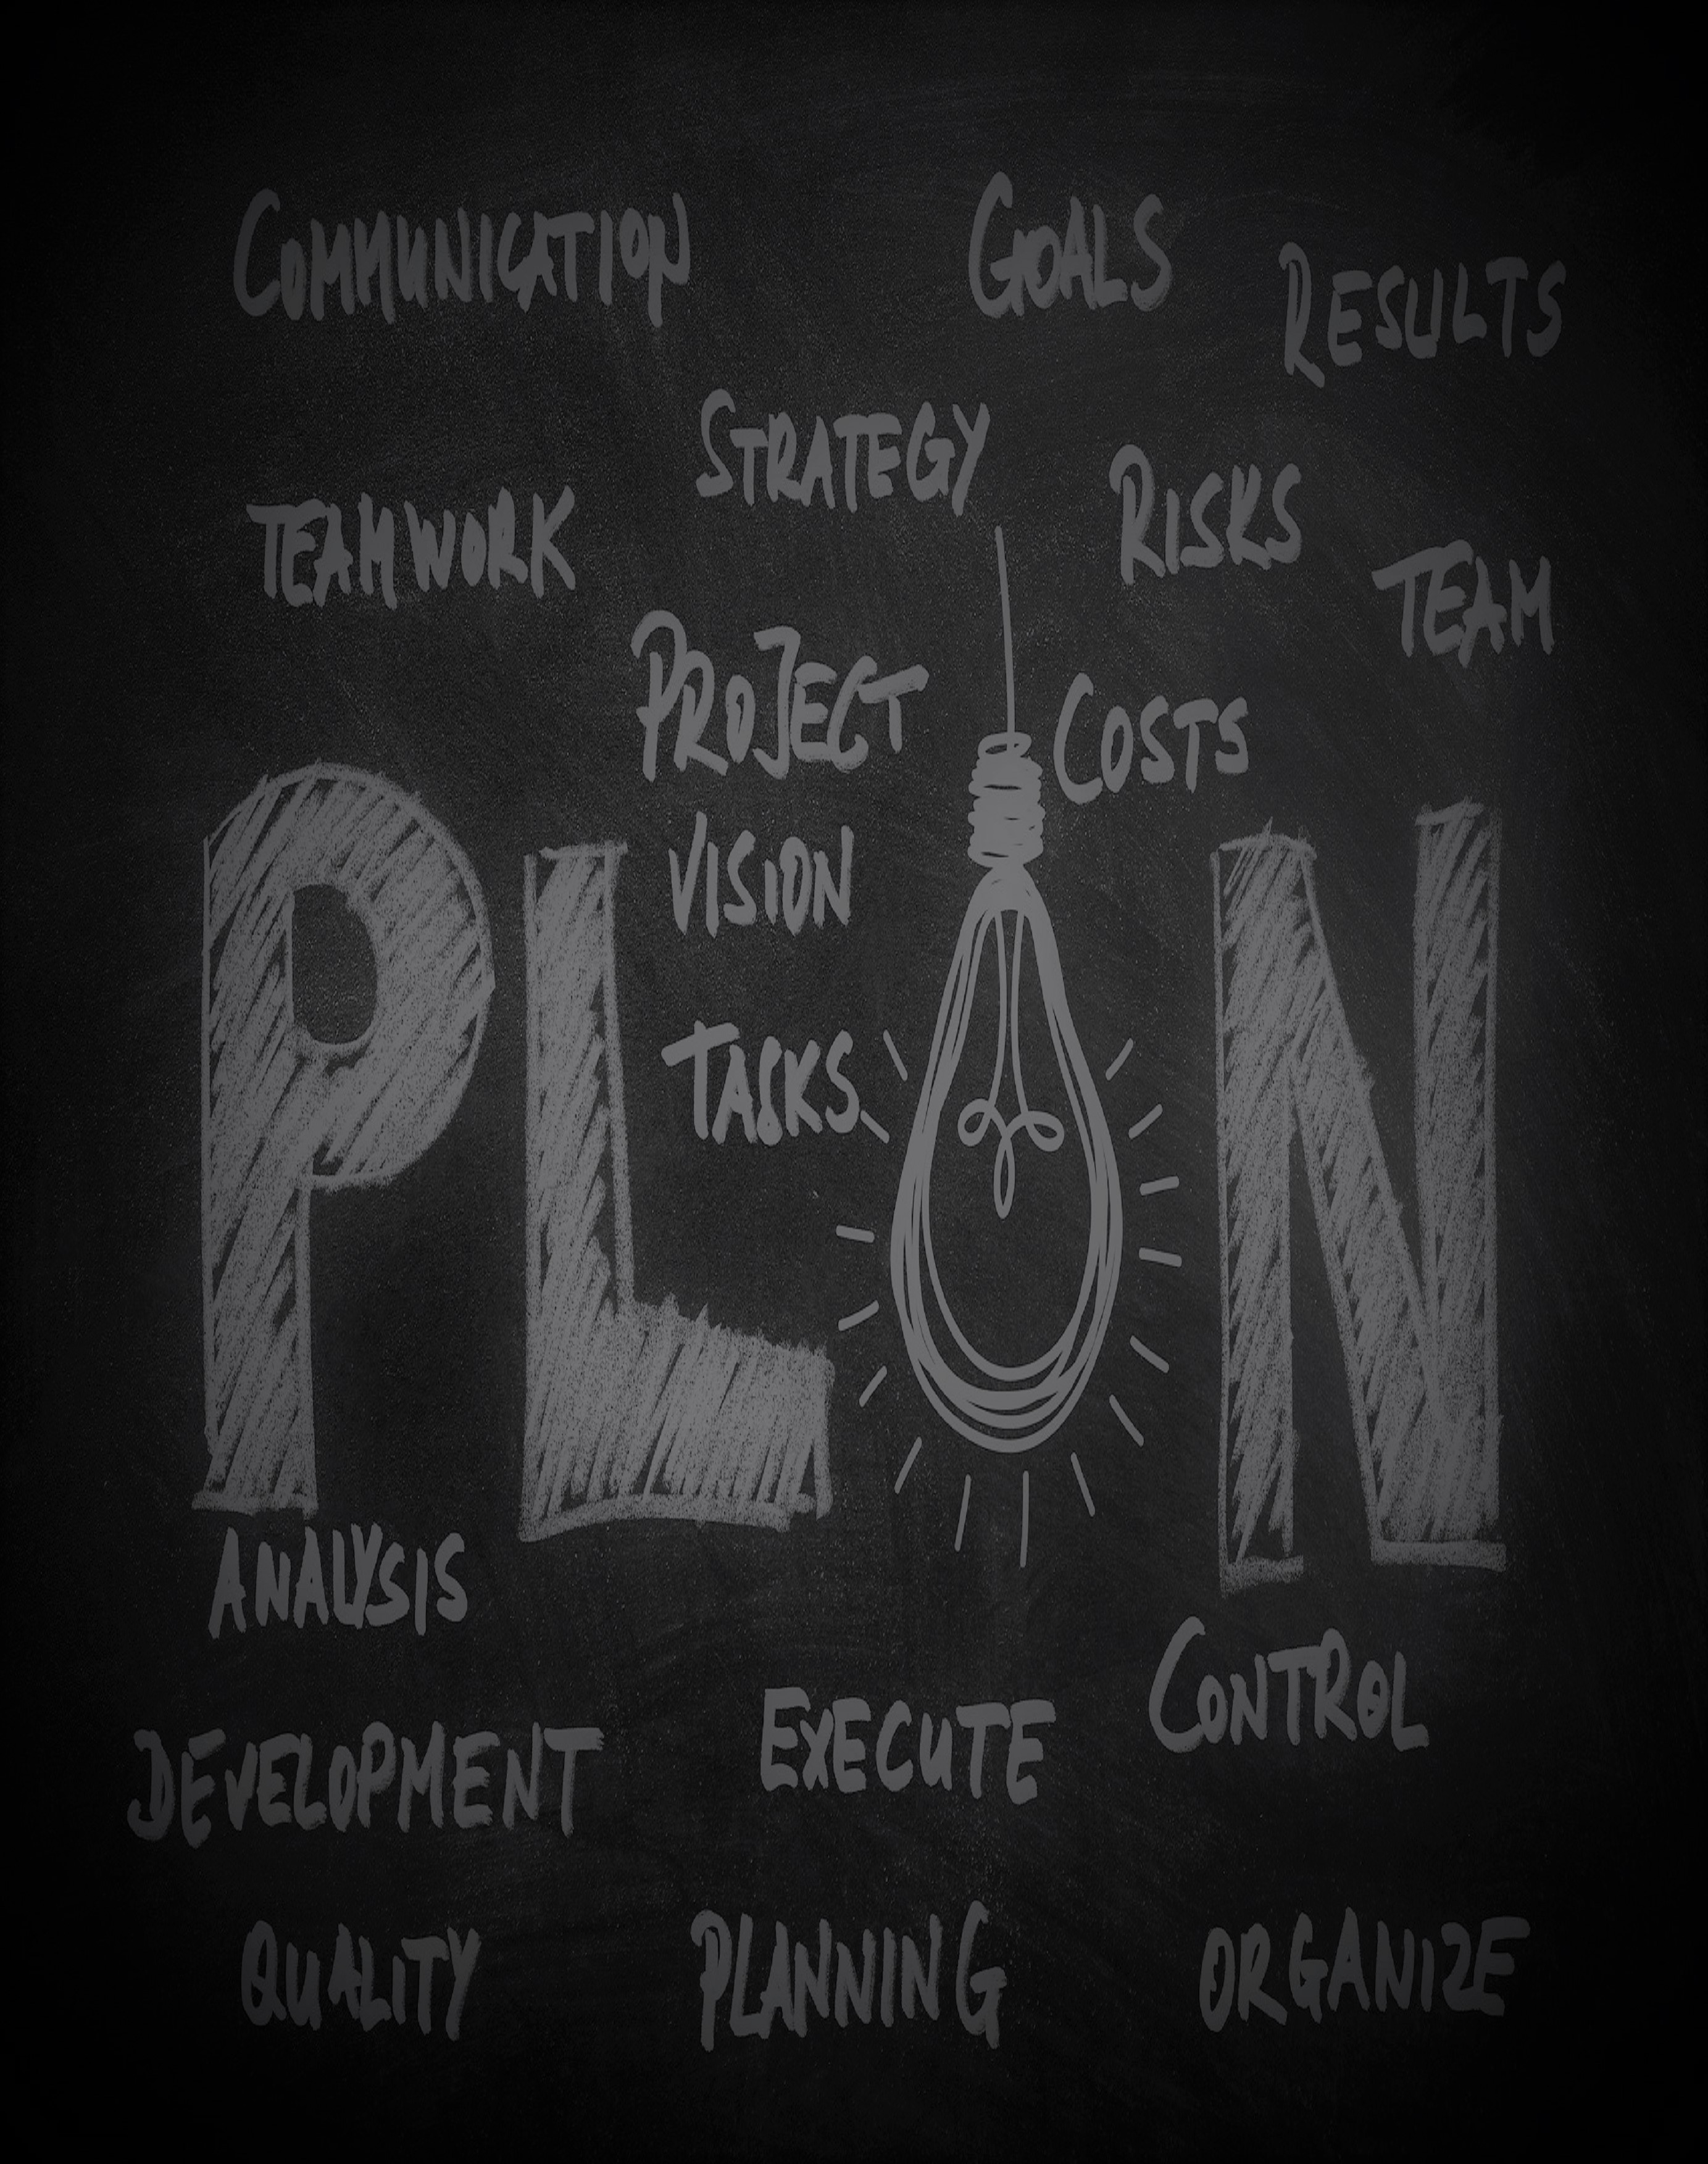 COMMUNICATION
GOALS
RESULTS
STRATEGY
TEAMWORK
RISKS
TEAM
PROJECT
COSTS
VISION
TASKS
PLAN
ANALYSIS
CONTROL
EXECUTE
DEVELOPMENT
QUALITY
PLANNING
ORGANIZE